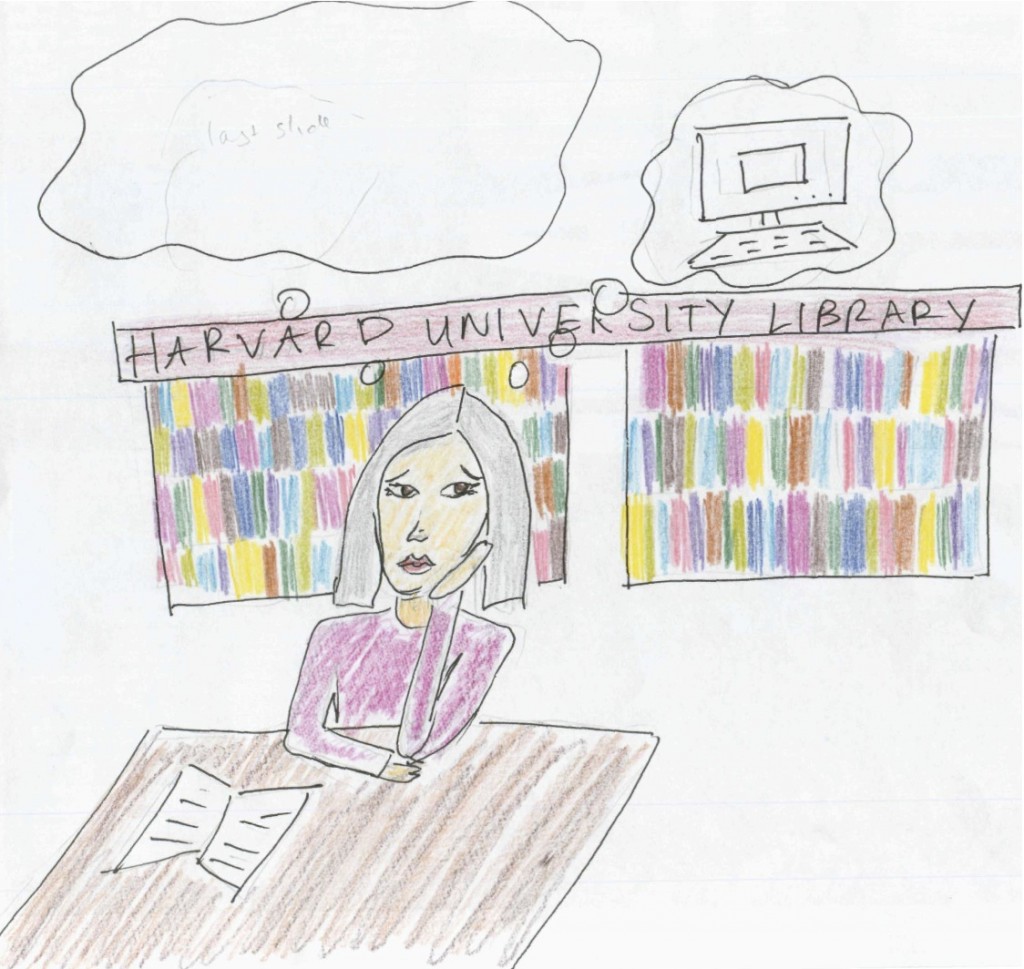 last slide
HARVARD UNIVERSITY LIBRARY